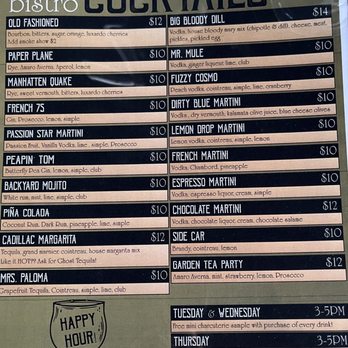 bistro COCKTAILS
OLD FASHIONED $12
Bourbon, bitters, sugar, orange, luxardo cherries
Add smoke show $2
PAPER PLANE $10
Rye, Amaro, Aperol, lemon
MANHATTEN QUAKE $10
Rye, sweet vermouth, bitters, luxardo cherries
FRENCH 75 $10
Gin, Prosecco, lemon, simple
PASSION STAR MARTINI $10
Passion Fruit, Vanilla Vodka, lime, simple, Prosecco
PEAPIN' TOM $10
Butterfly Pea Gin, lemon, simple, club
BACKYARD MOJITO $10
White rum, mint, lime, simple, club
PIÑA COLADA $10
Coconut Rum, Dark Rum, pineapple, lime, simple
CADILLAC MARGARITA $12
Tequila, grand marnier, cointreau, house margarita mix
Like it HOT??? Ask for Ghost Tequila!
MRS. PALOMA $10
Grapefruit Tequila, Cointreau, simple, lime, club
HAPPY
HOUR!
BIG BLOODY DILL $14
Vodka, house bloody mary mix (chipotle & dill), cheese, meat,
pickles, pickled egg
MR. MULE $10
Vodka, ginger liqueur, lime, club
FUZZY COSMO $10
Peach vodka, cointreau, simple, lime, cranberry
DIRTY BLUE MARTINI $10
Vodka, dry vermouth, kalamata olive juice, blue cheese olives
LEMON DROP MARTINI $10
Lemon vodka, cointreau, simple, lemon
FRENCH MARTINI $10
Vodka, Chambord, pineapple
ESPRESSO MARTINI $10
Vodka, espresso liquor, cream, simple
CHOCOLATE MARTINI $12
Vodka, chocolate liquor, cream, chocolate
SIDE CAR $10
Brandy, cointreau, lemon
GARDEN TEA PARTY $12
Amaro Averna, mint, strawberry, lemon, Prosecco
TUESDAY & WEDNESDAY 3-5PM
Free mini charcuterie sample with purchase of every drink!
THURSDAY 3-5PM